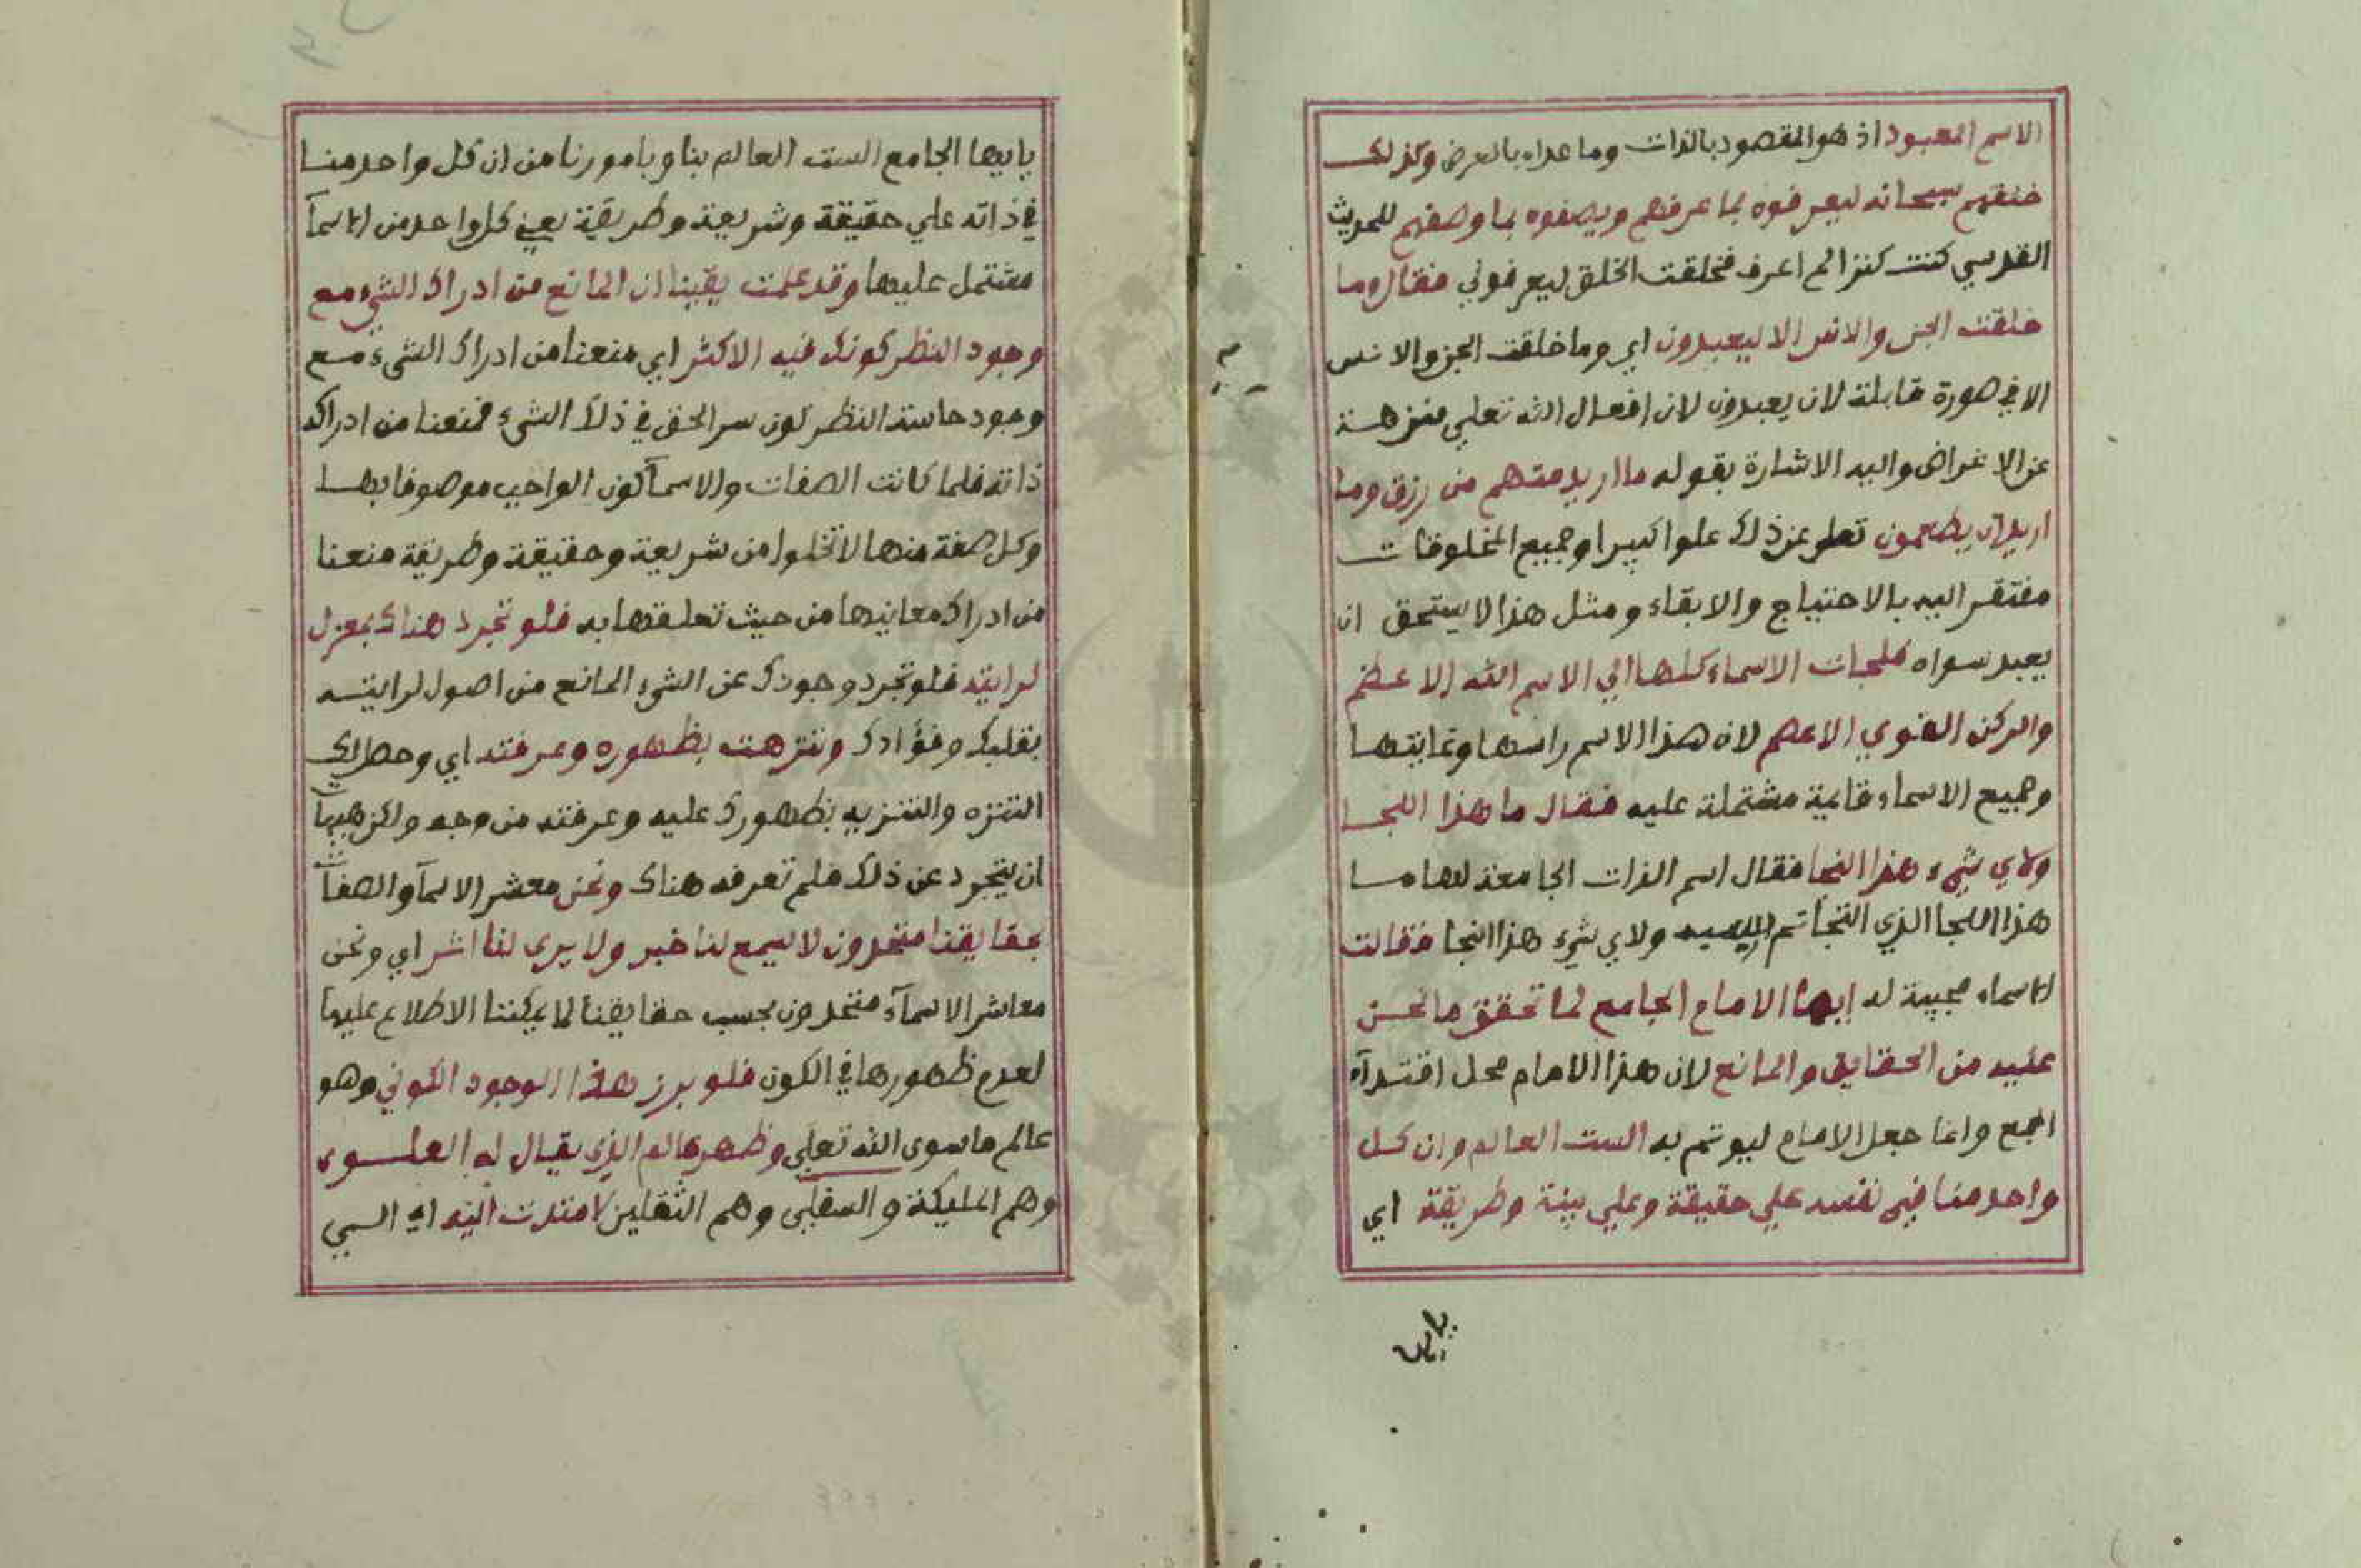 الاسم المعبود اذ هو المقصود بالذات وما عداه بالعرض وكذلك
خلقهم سبحانه ليعرفوه بما عرفهم ويصفوه بما وصفهم للحديث
القدسي كنت كنزا لم اعرف فخلقت الخلق ليعرفوني فقال وما
خلقت الجن والانس الا ليعبدون اي وما خلقت الجن والانس
الا في صورة قابلة لان يعبدون لان افعال الله تعلي منزهة
عن الاغراض واليه الاشارة بقوله ما اريد منهم من رزق وما
اريد ان يطعمون تعلي عن ذلك علوا كبيرا وجميع المخلوقات
مفتقر اليه بالاحتياج والابقاء ومثل هذا لا يستحق ان
يعبد سواه فلجات الاسماء كلها الي الاسم الله الاعظم
والركن القوي الاعصم لان هذا الاسم راسها وغايتها
وجميع الاسماء قايمة مشتملة عليه فقال ما هذا اللجا
ولاي شيء هذا النجا فقال اسم الذات الجامعة لها ما
هذا اللجا الذي التجاتم اليه ولاي شيء هذا النجا فقالت
الاسماء مجيبة له ايها الامام الجامع لما تحقق ما نحن
عليه من الحقايق والمانع لان هذا الامام محل اقتدآء
الجمع وانما جعل الامام ليوتم به الست العالم وان كل
واحد منا في نفسه علي حقيقة وعلي بينة وطريقة اي
يا ايها
يا ايها الجامع الست العالم بنا وبامورنا من ان كل واحد منا
في ذاته علي حقيقة وشريعة وطريقة يعني كل واحد من الاسمآ
مشتمل عليها وقد علمت يقينا ان المانع من ادراك الشيء مع
وجود النظر كونك فيه الاكثر اي منعنا من ادراك الشيء مع
وجود حاسة النظر كون سر الحق في ذلك الشيء فمنعنا من ادراك
ذاته فلما كانت الصفات والاسمآ كون الواجب موصوفا بها
وكل صفة منها لا تخلوا من شريعة وحقيقة وطريقة منعنا
من ادراك معانيها من حيث تعلقها به فلو تجرد هناك بمعزل
لرايته فلو تجرد وجودك عن الشيء المانع من اصول لرايته
بقلبك وفؤادك وتنزهت بظهوره وعرفته اي وحصل لك
التنزه والتنزيه بظهورك عليه وعرفته من وجه ولكن هيهآ
ان يتجرد عن ذلك فلم تعرفه هناك ونحن معشر الاسمآ والصفآت
بحقايقنا متحدون لا يسمع لنا خبر ولا يرى لنا اثر اي ونحن
معاشر الاسمآء متحدون بحسب حقايقنا لما يمكننا الاطلاع عليها
لعدم ظهورها في الكون فلو برز هذا الوجود الكوني وهو
عالم ما سوى الله تعلي وظهر عالم الذي يقال له العلوى
وهم المليكة والسفلي وهم الثقلين لامتدت اليه اي الي